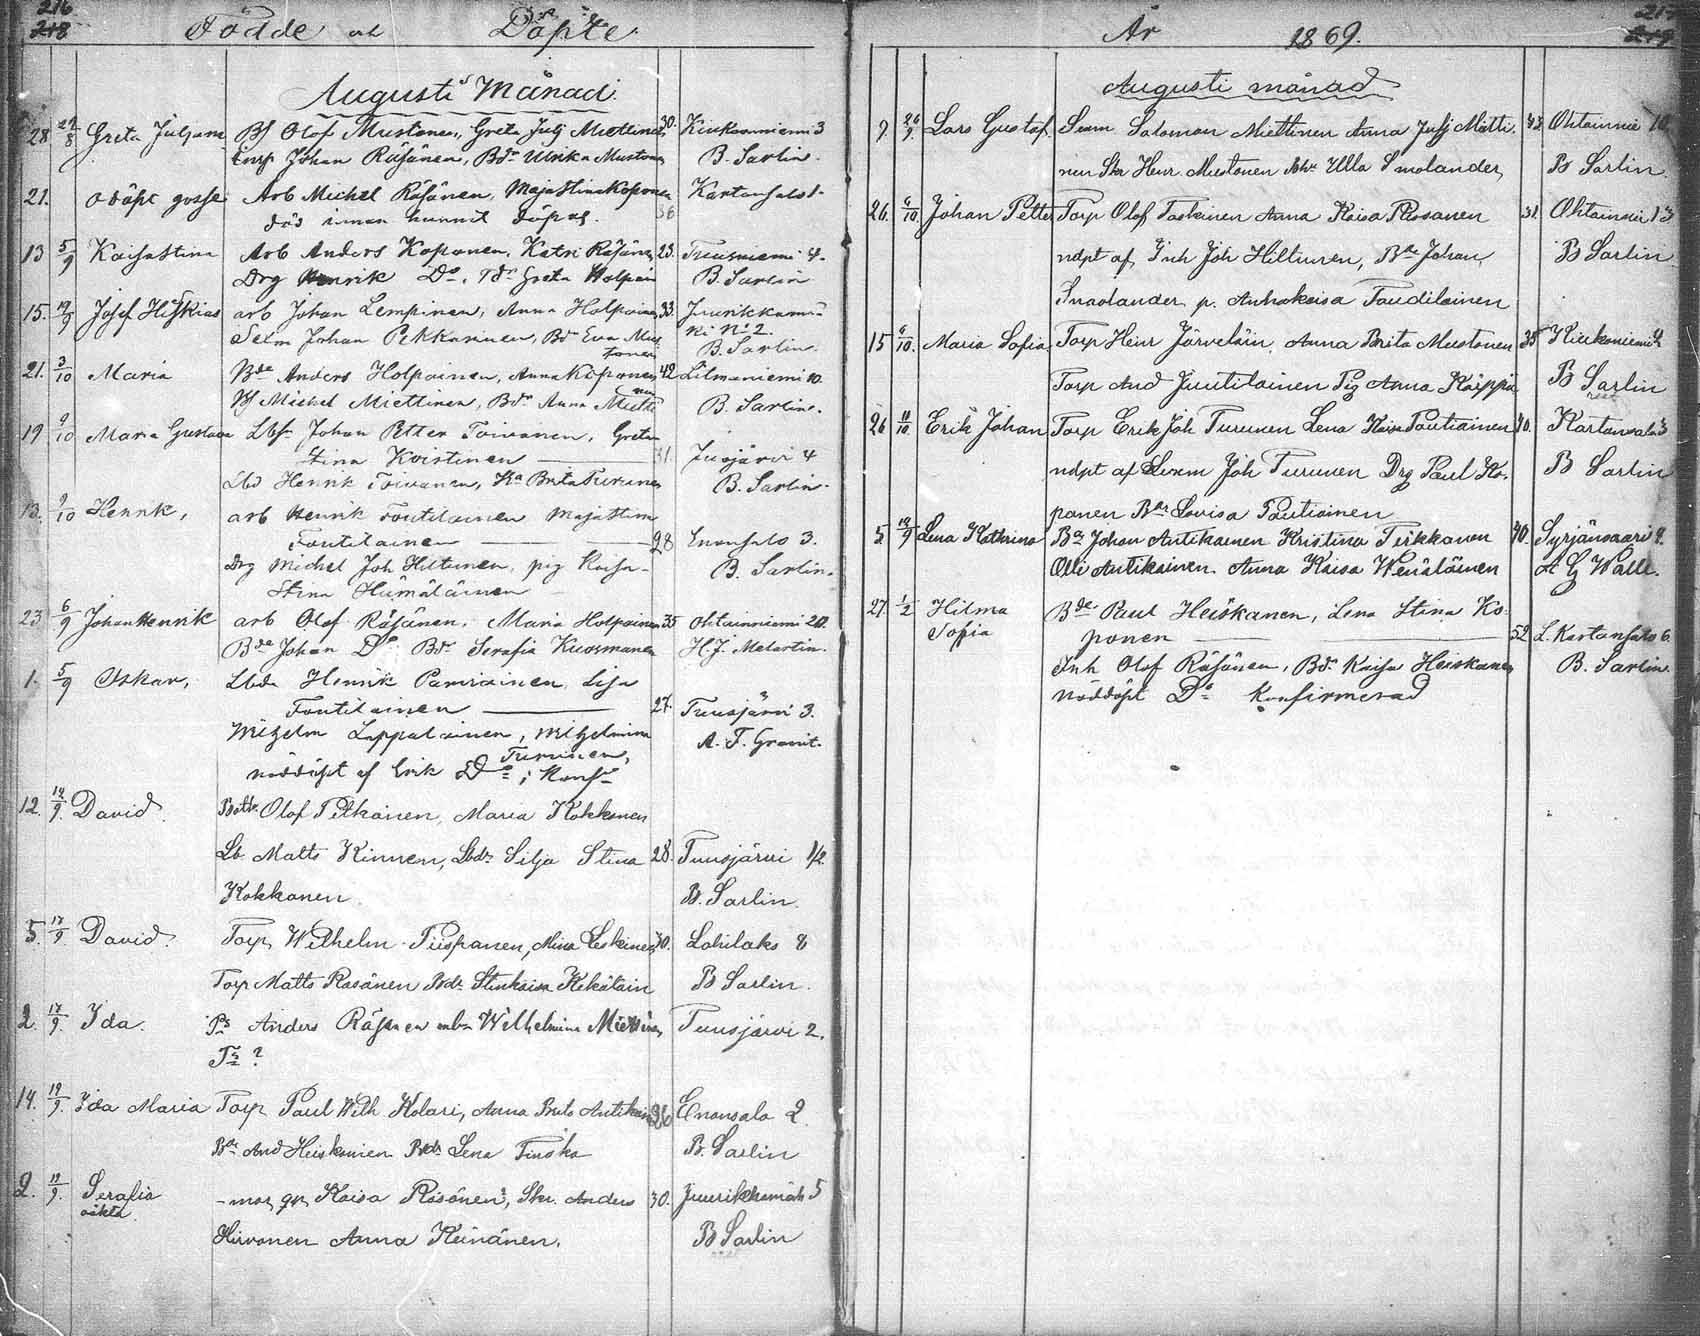 216
218
Födde och Döpte
Augusti Månad
28 29/8 Greta Juljana Bf Olof Mustonen, Greta Julj Miettinen 30. Kiukooniemi 3
Torp Johan Räsänen, Bdr Ulrika Mustonen B. Sarlin.
21. odöpt gosse Arb Michel Räsänen, Maja Stina Koponen 36 Kartansalo 1
död innan hunnit döpas.
13 5/9 Kaisa Stina Arb Anders Koponen, Katri Räsänen 23. Tuusniemi 4.
Drg Henrik Do, Greta Holpain B. Sarlin
15. 19/9 Josef Hiskias arb Johan Lempinen, Anna Holpainen 33. Juurikkamä
Sexm Johan Pekkarinen, Bdr Eva Mus ki No 2.
tonen B. Sarlin.
21. 3/10 Maria Bde Anders Holpainen, Anna Koponen 42 Litmaniemi 10.
Bf Michel Miettinen, Bdr Anna Mietti
nen B. Sarlin.
19 9/10 Maria Gustava Lbf Johan Petter Toivanen, Greta
Stina Koistinen 31. Juojärvi 4
Lbd Henrik Toivanen, Ka Brita Turunen B. Sarlin.
13. 9/10 Henrik, arb Henrik Toutilainen Maja Stina
Toutilainen 28 Enonsalo 3.
Drg Michel Joh Hiltunen, pig Kaisa
Stina Hämäläinen B. Sarlin.
23 6/9 Johan Henrik arb Olof Räsänen, Maria Holpainen 35 Ohtainniemi 20.
Bde Johan Do Bdr Serafia Kuosmanen H.J. Melartin.
1. 5/9 Oskar, Lbde Henrik Parviainen, Lisa
Toutilainen 27. Tuusjärvi 3.
Wilhelm Lappalainen, Wilhelmina A. F. Granit.
Turunen,
nöddöpt af Erik Do i Konf
12. 12/9. David. Olof Pitkänen, Maria Kokkonen
Lb. Matts Kinnen, Lbdr Silja Stina 28. Tuusjärvi 1/2
Kokkonen. B. Sarlin.
5. 17/9 David. Torp Wilhelm Piispanen, Mina Leskinen 30. Lohilaks 8
Torp Matts Räsänen Bdr Stinkaisa Kekäläin B Sarlin.
2. 17/9. Ida. Anders Räsänen Wilhelmina Miettinen Tuusjärvi 2.
?
14. 19/9. Ida Maria Torp Paul Wilh Kolari, Anna Brita Antikain 36 Enonsalo 2.
Bde And Heiskanen Bdr Lena Tinska B. Sarlin
2. 19/9. Serafia mor, qv, Kaisa Räsänen, Skr. Anders 30. Juurikkamäk 5
oäkta. Hirvonen Anna Keinänen. B Sarlin
217
219
År 1869.
Augusti månad
9. 26/9. Lars Gustaf. Sexm Salomon Miettinen Anna Julj Mietti 43. Ohtainnie 10
nen Skr Henr. Mustonen Ulla Smolander B Sarlin.
26. 6/10 Johan Petter Torp Olof Taskinen Anna Kaisa Räsänen 31. Ohtainnie 13
ndpt af Inh Joh Hiltunen, Bde Johan B Sarlin.
Smolander p. Annakaisa Taudilainen
15 6/10. Maria Sofia Torp Henr Järveläin, Anna Brita Mustonen 35 Kiukoniemi 2
Torp And Juutilainen Pig Anna Kaippa B Sarlin
26 11/10. Erik Johan Torp Erik Joh Turunen Lena Kaisa Poutiainen 40. Kartansalo 3
ndpt af Sexm Joh Turunen Drg Paul Ko- B Sarlin
ponen Bdr Lovisa Poutiainen
5. 19/9 Lena Kathrina Bde Johan Antikainen Kristina Tirkkonen 40. Syrjänsaari 4.
Olli Antikainen. Anna Kaisa Wenäläinen A G Walle.
27. 1/2 Hilma Bde Paul Heiskanen, Lena Stina Ko-
Sofia ponen 52 L. Kartansalo 6.
Inh Olof Räsänen, Bdr Kaisa Heiskanen B. Sarlin.
Nöddöpt Do Konfirmerad